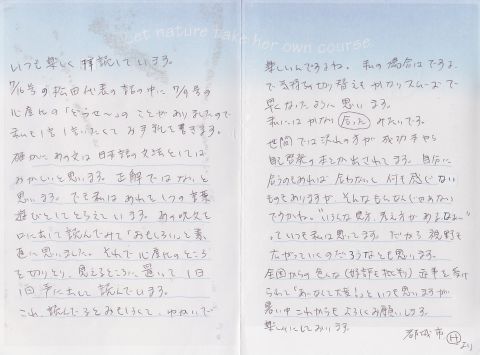 Let nature take her own course
いつも楽しく拝読しています。
7/16号の松田代表の話の中に7/9号の
心産んの「どうせ〜」のことがありましたので
私も1言1言いたくてお手紙を書きます。
確かにあの文は日本語の文法としては
おかしいと思います。正解ではないと
思います。でも私はあれを1つの言葉
遊びとしてとらえています。あの呪文を
口に出して読んでみて「おもしろい」と素
直に思いました。それで心産んのところ
を切りとり、見えるところに置いて1日
1回声に出して読んでいます。
これ、読んでるとおもしろくて、ゆかいで
楽しいんですよね。私の場合はですよ。
で気持の切り替えもかなりスムーズで
早くなったように思います。
私にはかなり合ったみたいです。
世間では沢山の方が成功本やら
自己啓発の本とか出されてます。自分に
合うのもあれば合わないし何も感じない
ものもありますがそんなもんなんじゃないん
ですかね。"いろんな見方、考え方があるなぁ〜"
っていつも私は思ってます。だから視野も
広がっていくのだろうなとも思います。
全国からの色んな(好評と批判)応本を受け
られて「あ〜なんて大変!」といつも思いますが
暑い中これからもよろしくお願いします。
楽しみにしております。
都城市 Hより